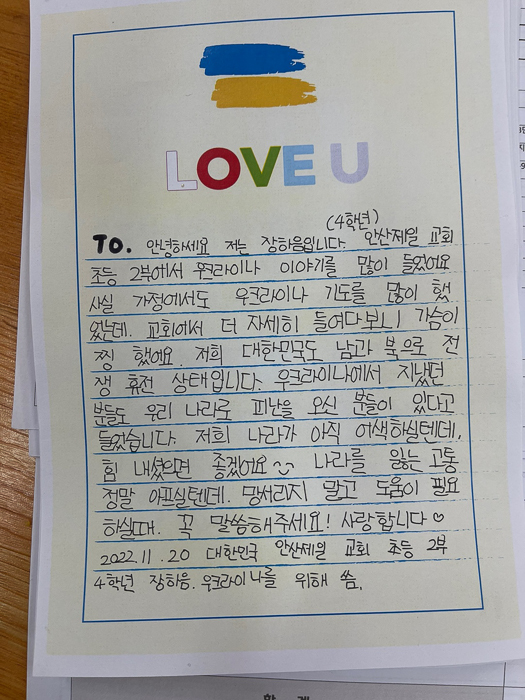 LOVE U
(4학년)
TO. 안녕하세요 저는 장하음입니다. 안산제일 교회
초등 2부에서 우크라이나 이야기를 많이 들었어요
사실 가정에서도 우크라이나 기도를 많이 했
었는데. 교회에서 더 자세히 들여다보니 가슴이
찡 했어요. 저희 대한민국도 남과 북으로 전
쟁 휴전 상태입니다. 우크라이나에서 지냈던
분들도 우리 나라로 피난을 오신 분들이 있다고
들었습니다. 저희 나라가 아직 어색하실텐데.
힘 내셨으면 좋겠어요 나라를 잃는 고통
정말 아프실텐데. 망서리지 말고 도움이 필요
하실때. 꼭 말씀해주세요! 사랑합니다 ♡
2022.11.20 대한민국 안산제일 교회 초등 2부
4학년 장하음. 우크라이나를 위해 씀.